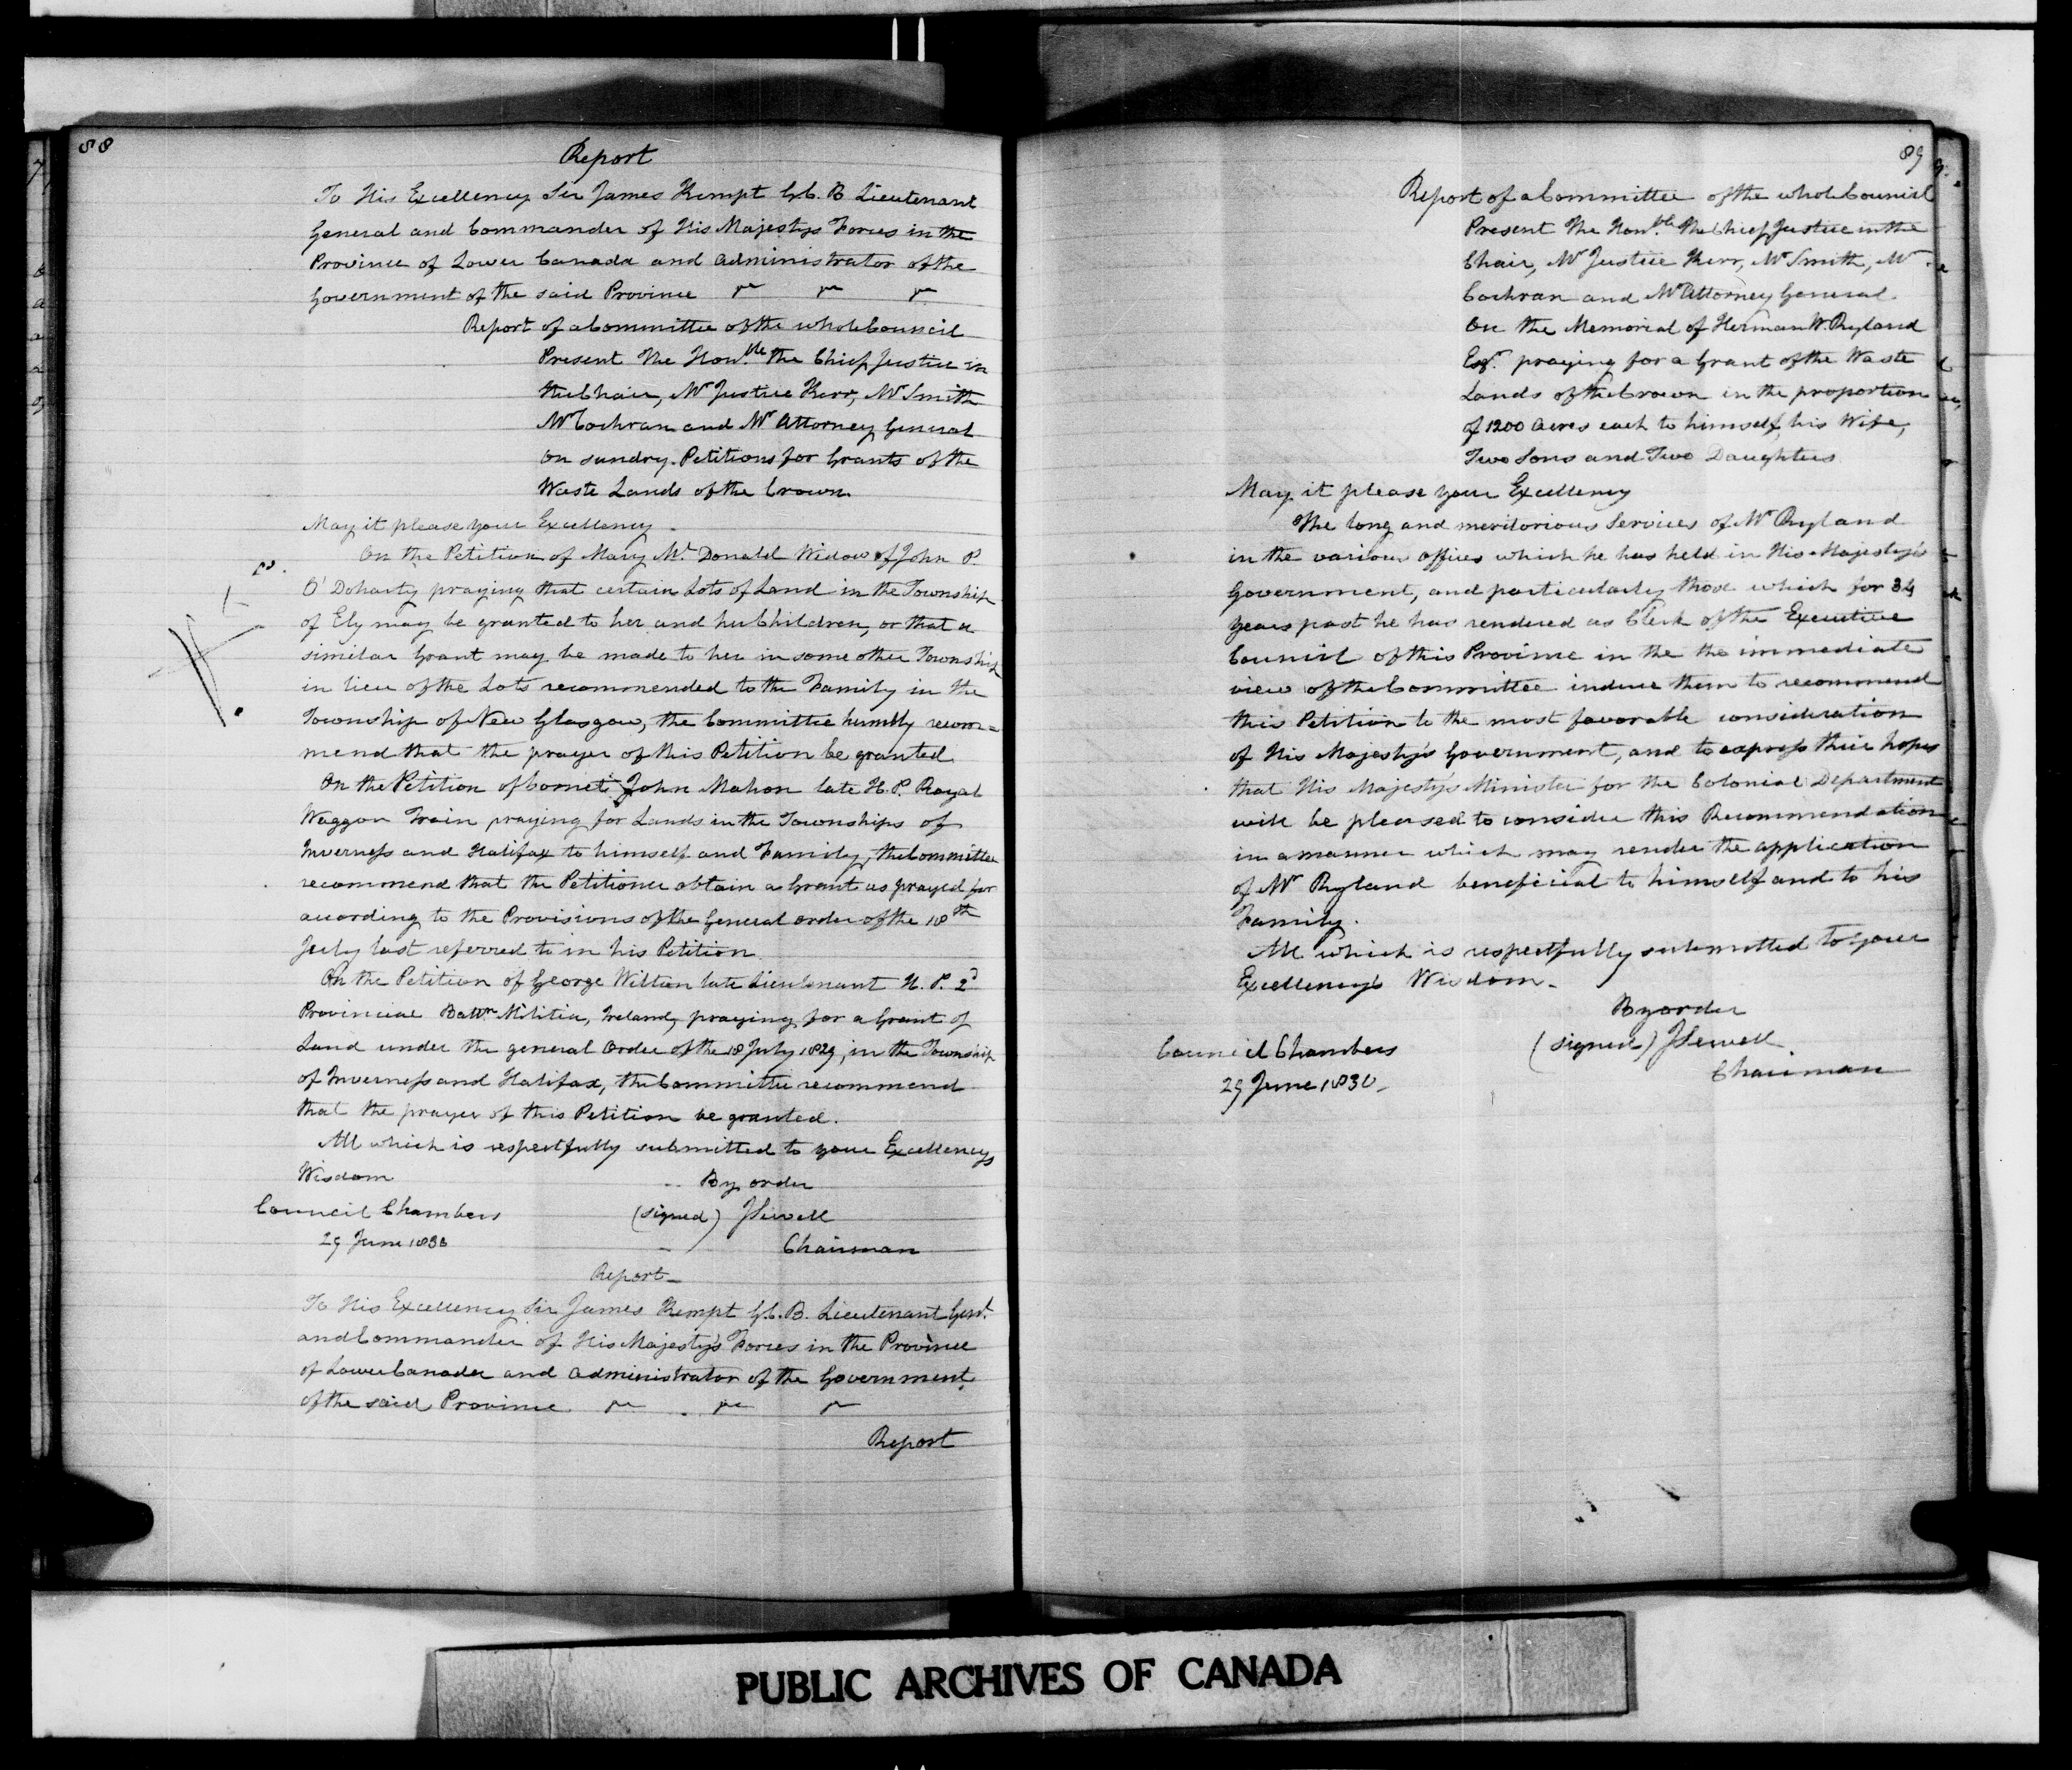 88
Report
To His Excellency Sir James Kempt G.C.B Lieutenant
General and Commander of His Majestys Forces in the
Province of Lower Canada and Administrator of the
Government of the said Province
Report of a Committee of the whole Council
Present The Honble the Chief Justice in
the Chair, Mr Justice Kerr, Mr Smith
Mr Cochran and Mr Attorney General
On sundry Petitions for Grants of the
Waste Lands of the Crown
May it please your Excellency
On the Petition of Mary Mc Donald Widow of John P.
O'Doharty praying that certain Lots of Land in the Township
of Ely may be granted to her and her Children, or that a
similar Grant may be made to her in some other Township
in lieu of the Lots recommended to the Family in the
Township of New Glasgow, the Committee humbly recom=
mend that the prayer of this Petition be granted
On the Petition of Cornet John Mahon late H.P. Royal
Waggon Train praying for Lands in the Townships of
Inverness and Halifax to himself and Family, the Committee
recommend that the Petitioner obtain a Grant as prayed for
according to the Provisions of the General Order of the 18th
July last referred to in his Petition
On the Petition of George Wilton late Lieutenant H.P. 2d
Provincial Battn Militia, Ireland, praying for a Grant of
Land under the general Order of the 18 July 1829, in the Township
of Inverness and Halifax, the Committee recommend
that the prayer of this Petition be granted.
All which is respectfully submitted to your Excellencys
Wisdom
By order
Council Chambers (signed) J Sewell
29 June 1830 Chairman
Report
To His Excellency Sir James Kempt G.C.B. Lieutenant Genl
and Commander of His Majesty's Forces in the Province
of Lower Canada and Administrator of the Government
of the said Province
Report
89
Report of a Committee of the whole Council
Present The Honble The Chief Justice in the
Chair, Mr Justice Kerr, Mr Smith, Mr
Cochran and Mr Attorney General.
On the Memorial of Herman W. Ryland
Esqr praying for a Grant of the Waste
Lands of the Crown in the proportion
of 1200 Acres each to himself, his Wife,
Two Sons and Two Daughters
May it please your Excellency
The long and meritorious Services of Mr Ryland
in the various offices which he has held in His Majesty's
Government, and particularly those which for 34
years past he has rendered as Clerk of the Executive
Council of this Province in the the immediate
view of the Committee induce them to recommend
this Petition to the most favorable consideration
of His Majesty's Government, and to express their hopes
that His Majesty's Minister for the Colonial Department
will be pleased to consider this Recommendation
in a manner which may render the application
of Mr Ryland beneficial to himself and to his
Family.
All which is respectfully submitted to your
Excellency's Wisdom.
By order
Council Chambers (signed) J Sewell
29 June 1830 Chairman
PUBLIC ARCHIVES OF CANADA